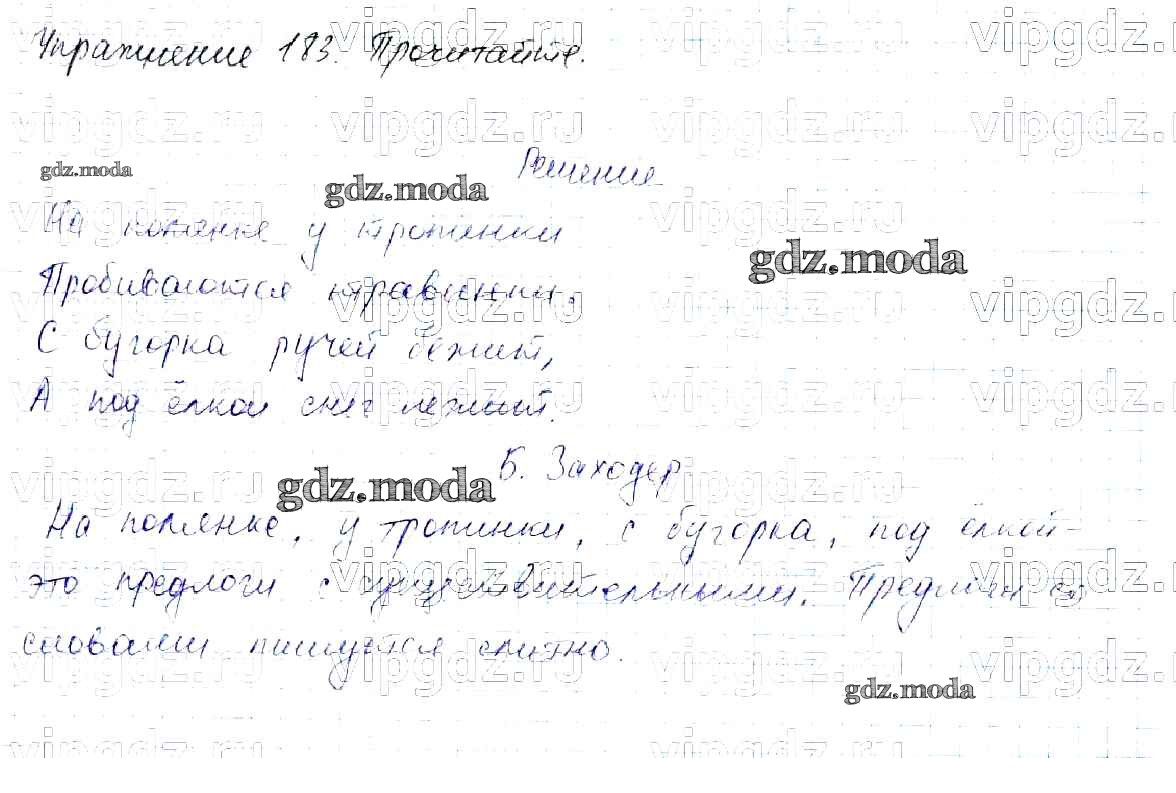 Упражнение 183. Прочитайте.
Решение
На полянке у тропинки
Пробиваются травинки.
С бугорка ручей бежит,
А под ёлкой снег лежит.
Б. Заходер
На полянке, у тропинки, с бугорка, под ёлкой -
это предлоги с существительными. Предлоги со
словами пишутся слитно.
gdz.moda
gdz.moda
gdz.moda
gdz.moda
gdz.moda
vipgdz.ru